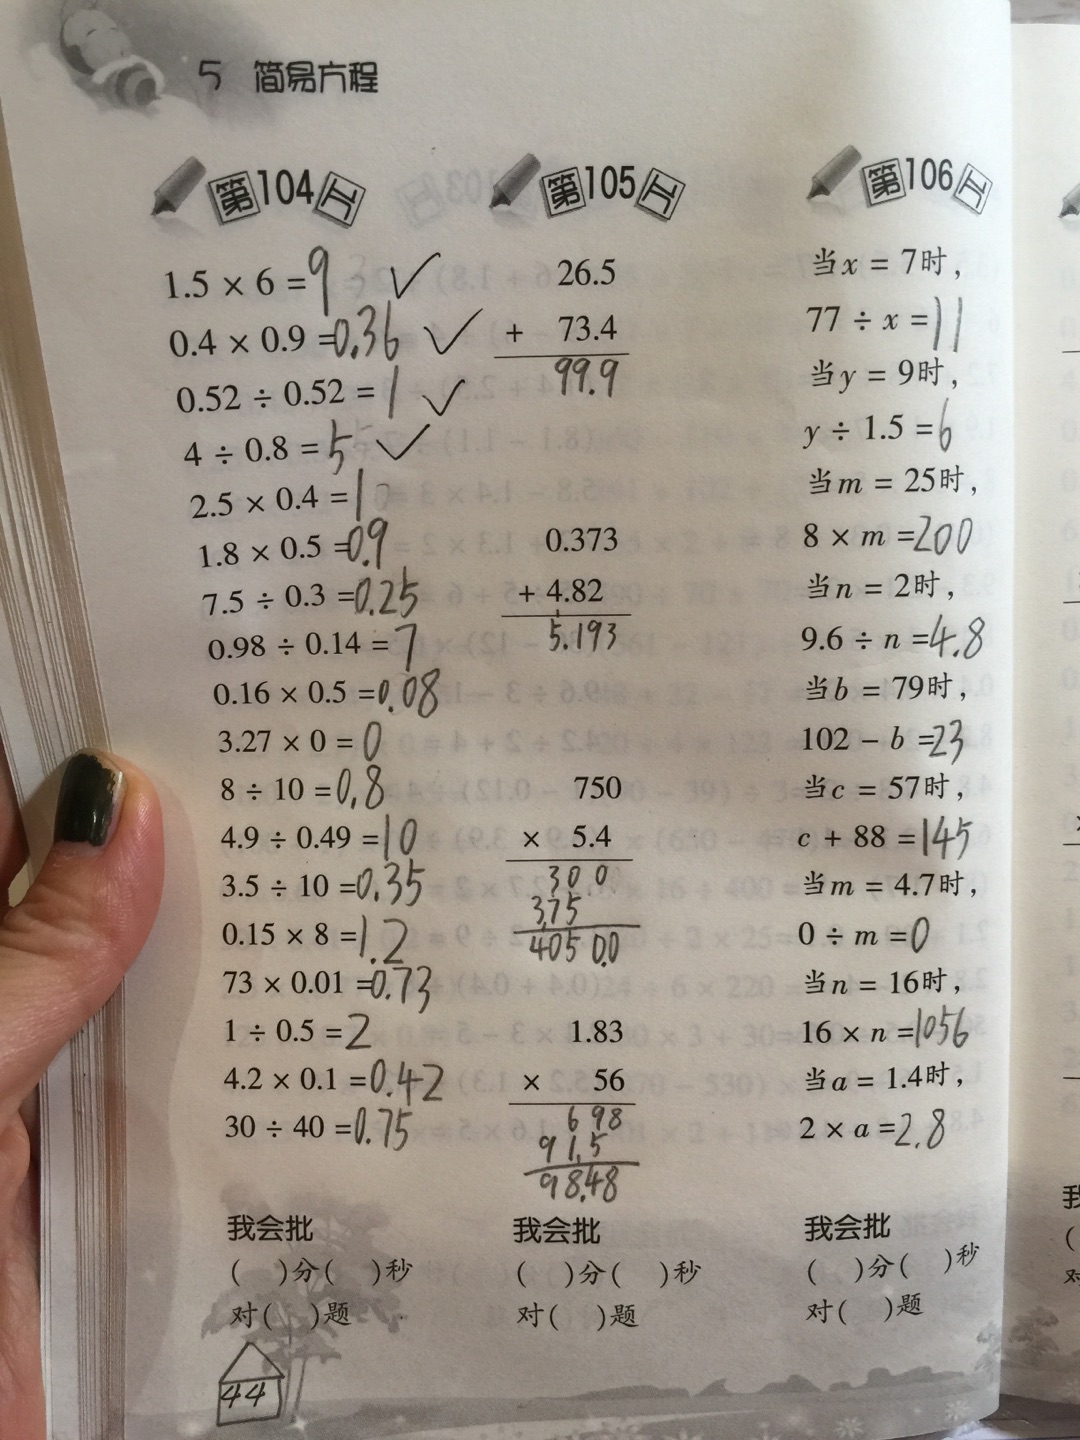 5 简易方程
第104工
1.5 × 6 = 9 ✓
0.4 × 0.9 = 0.36 ✓
0.52 ÷ 0.52 = 1 ✓
4 ÷ 0.8 = 5 ✓
2.5 × 0.4 = 1
1.8 × 0.5 = 0.9
7.5 ÷ 0.3 = 0.25
0.98 ÷ 0.14 = 7
0.16 × 0.5 = 0.08
3.27 × 0 = 0
8 ÷ 10 = 0.8
4.9 ÷ 0.49 = 10
3.5 ÷ 10 = 0.35
0.15 × 8 = 1.2
73 × 0.01 = 0.73
1 ÷ 0.5 = 2
4.2 × 0.1 = 0.42
30 ÷ 40 = 0.75
我会批
( )分( )秒
对( )题
第105工
26.5
+ 73.4
99.9
0.373
+ 4.82
5.193
750
× 5.4
300
375
4050.0
1.83
× 56
698
915
98.48
我会批
( )分( )秒
对( )题
第106工
当x = 7时,
77 ÷ x = 11
当y = 9时,
y ÷ 1.5 = 6
当m = 25时,
8 × m = 200
当n = 2时,
9.6 ÷ n = 4.8
当b = 79时,
102 − b = 23
当c = 57时,
c + 88 = 145
当m = 4.7时,
0 ÷ m = 0
当n = 16时,
16 × n = 1056
当a = 1.4时,
2 × a = 2.8
我会批
( )分( )秒
对( )题
44